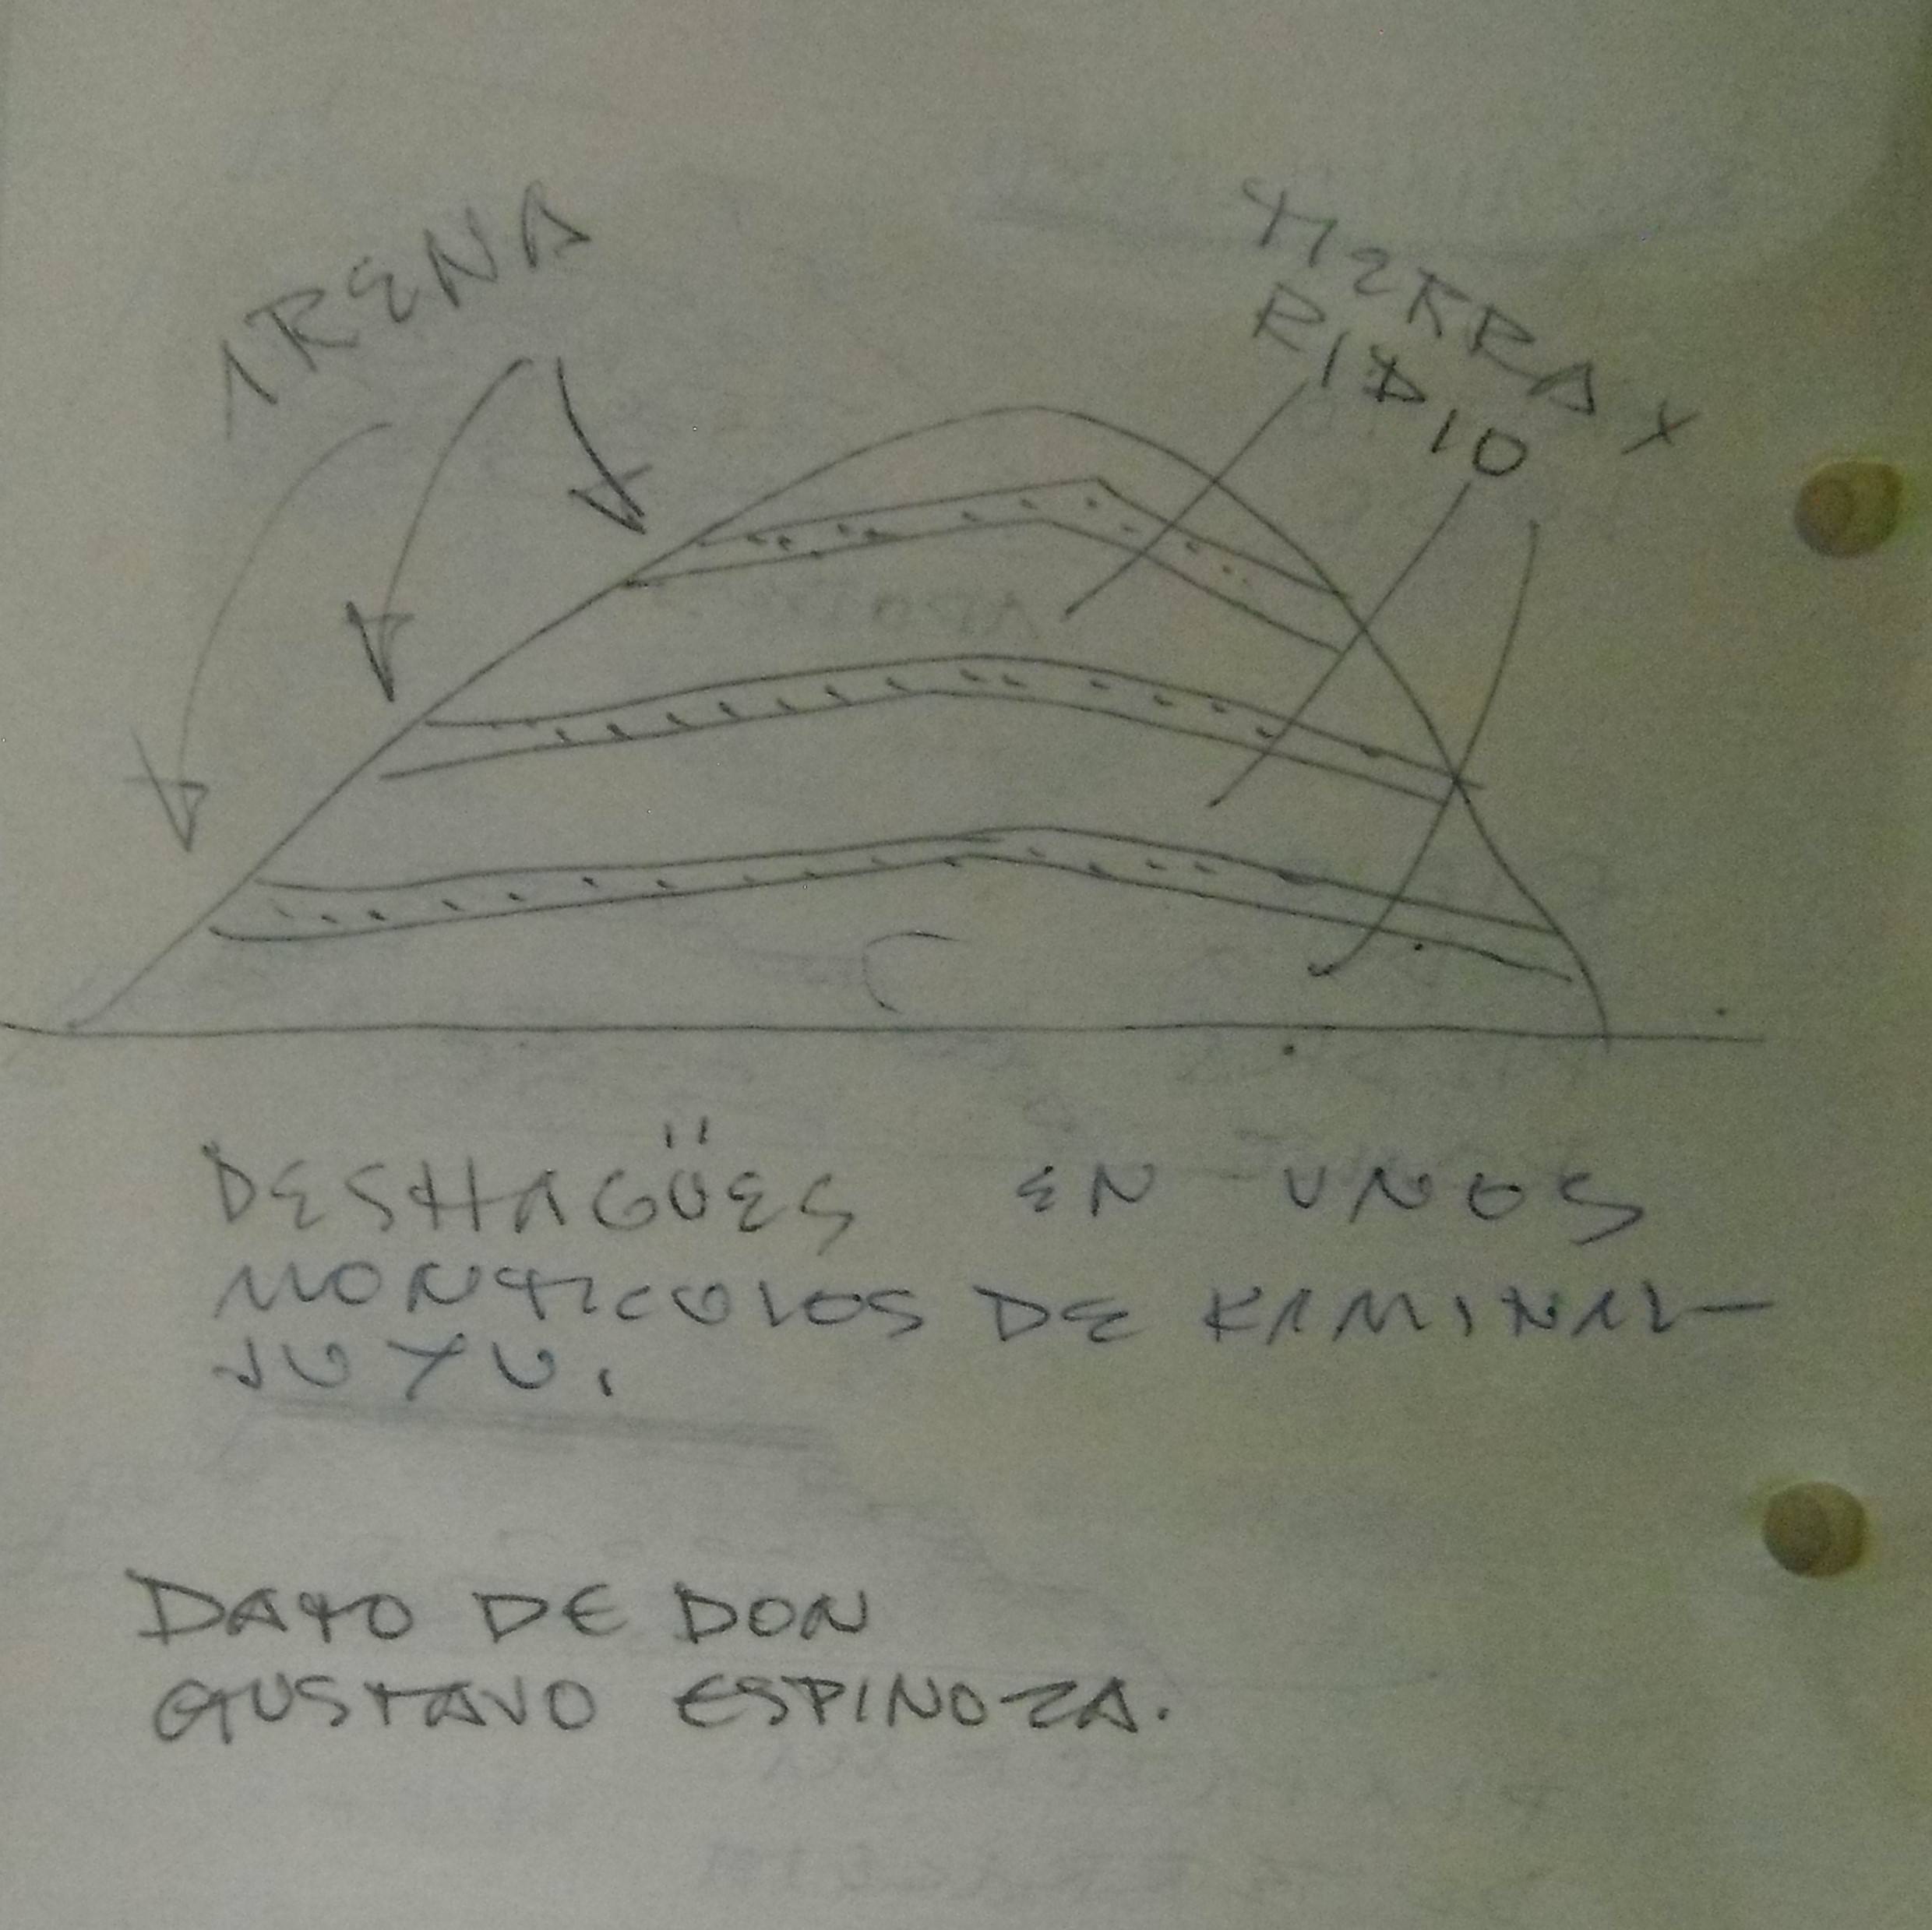 ARENA
TIERRA Y
RIPIO
DESHAGÜES EN UNOS
MONTICULOS DE KAMINAL-
JUYU.
DATO DE DON
GUSTAVO ESPINOZA.